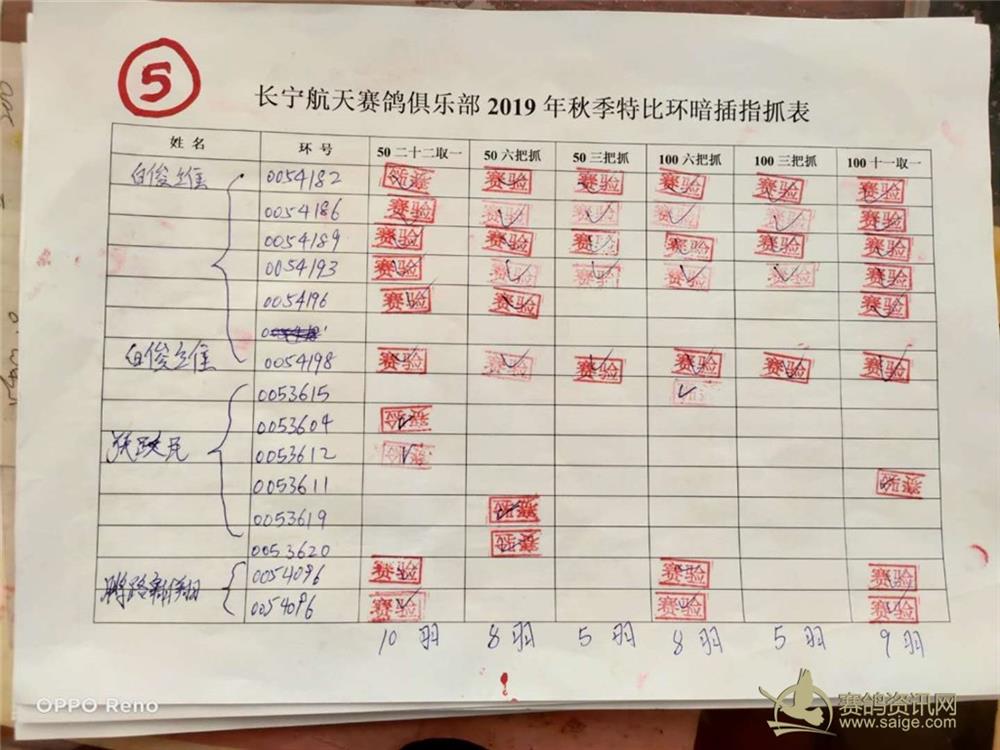 5
长宁航天赛鸽俱乐部 2019 年秋季特比环暗插指抓表
姓 名 环 号 50 二十二取一 50 六把抓 50 三把抓 100 六把抓 100 三把抓 100 十一取一
白俊 0054182 赛验 赛验 赛验 赛验 赛验 赛验
0054186 赛验 赛验 赛验 赛验 赛验 赛验
0054189 赛验 赛验 赛验 赛验 赛验 赛验
0054193 赛验 赛验 赛验 赛验 赛验 赛验
0054196 赛验 赛验 赛验
白俊 0054198 赛验 赛验 赛验 赛验 赛验 赛验
0053615 赛验
0053604 赛验
民 0053612 赛验
0053611 赛验
0053619 赛验
0053620 赛验
0054096 赛验 赛验 赛验
0054096 赛验 赛验 赛验
10 羽 8 羽 5 羽 8 羽 5 羽 9 羽
OPPO Reno
赛鸽资讯网
www.saige.com